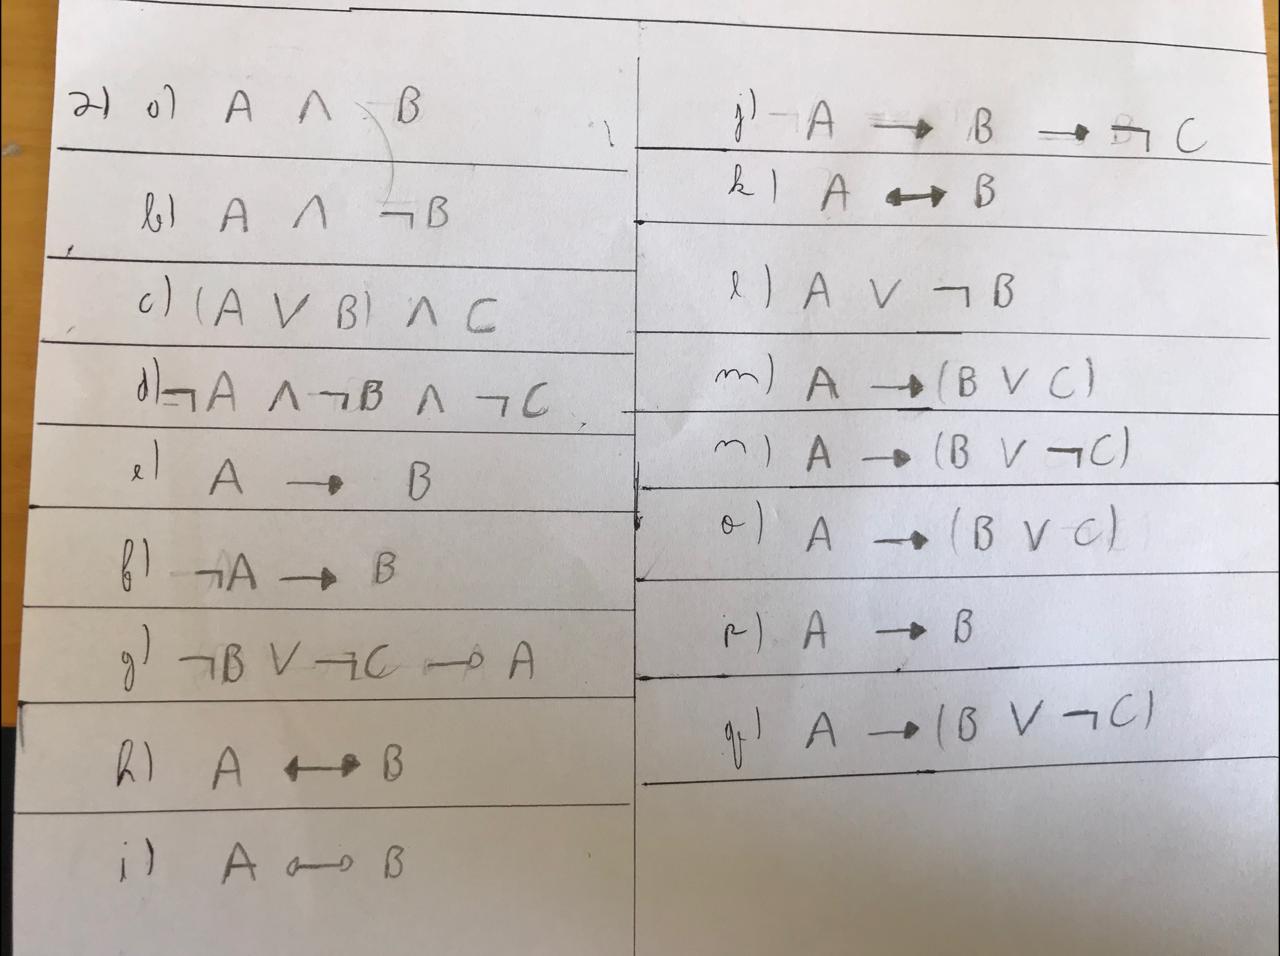 2) a) A ∧ B
b) A ∧ ¬B
c) (A ∨ B) ∧ C
d) ¬A ∧ ¬B ∧ ¬C
e) A → B
f) ¬A → B
g) ¬B ∨ ¬C → A
h) A ↔ B
i) A ↔ B
j) A → B → ¬ C
k) A ↔ B
l) A ∨ ¬ B
m) A → (B ∨ C)
n) A → (B ∨ ¬C)
o) A → (B ∨ C)
p) A → B
q) A → (B ∨ ¬C)